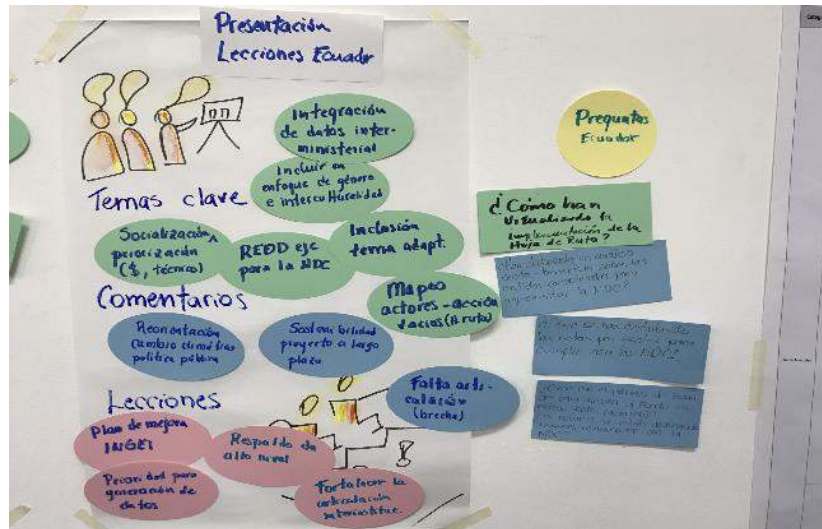 Presentación
Lecciones Ecuador
Integración
de datos inter-
ministerial
Incluir en
enfoque de género
e interculturalidad
Temas clave
Socialización,
priorización
($, técnico)
REDD eje
para la NDC
Inclusión
tema adapt.
Mapeo
actores-acción
vacíos (H. ruta)
Comentarios
Reorientación
cambio climático
política pública
Sostenibilidad
proyecto a largo
plazo
Falta arti-
culación
(brecha)
Lecciones
Plan de mejora
INGEI
Respaldo de
alto nivel
Prioridad para
generación de
datos
Fortalecer la
articulación
interinstituc.
Preguntas
Ecuador
¿Cómo han
visualizando la
implementación de la
Hoja de Ruta?
costo beneficio sobre las
la NDC?
las metas por sector para
cumplir con las NDC?
NDC?